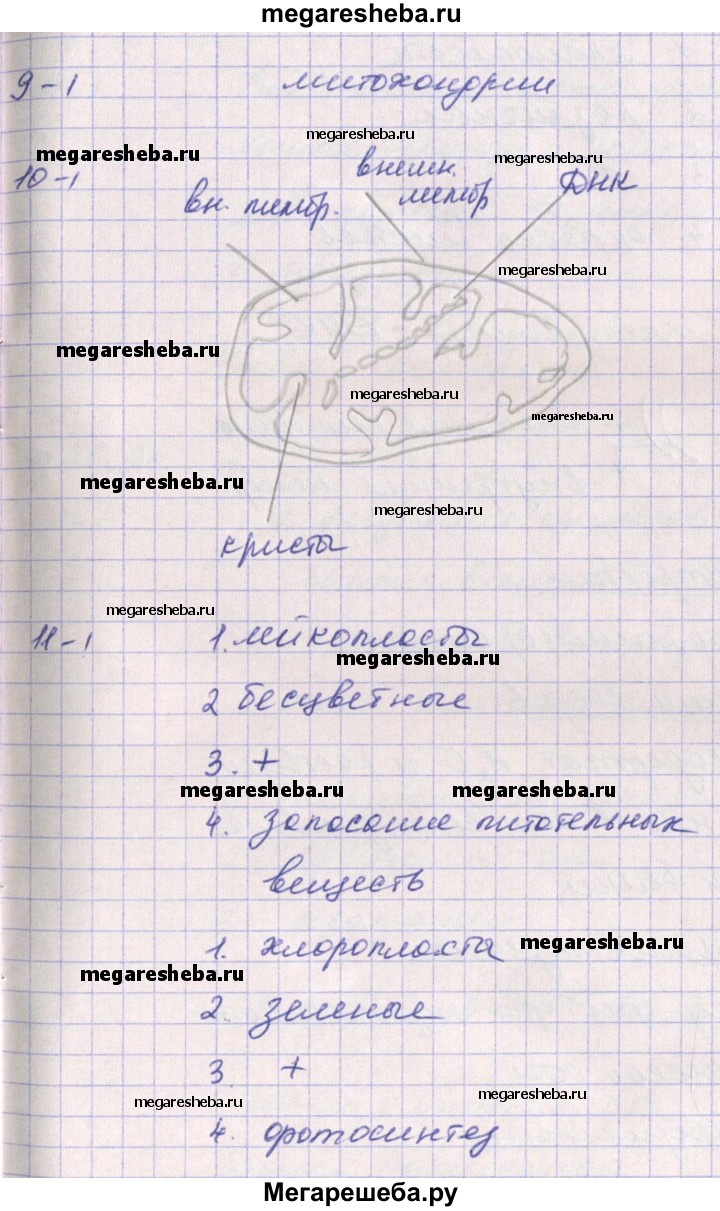 megaresheba.ru
9-1 митохондрии
megaresheba.ru
megaresheba.ru
megaresheba.ru
10-1
вн. мембр.
внешн.
мембр
ДНК
megaresheba.ru
megaresheba.ru
megaresheba.ru
megaresheba.ru
megaresheba.ru
megaresheba.ru
кристы
megaresheba.ru
11-1 1. лейкопласты
megaresheba.ru
2 бесцветные
3. +
megaresheba.ru megaresheba.ru
4. запасание питательных
веществ
1. хлоропласты megaresheba.ru
megaresheba.ru
2. зеленые
3. +
megaresheba.ru megaresheba.ru
4. фотосинтез
Мегарешеба.ру